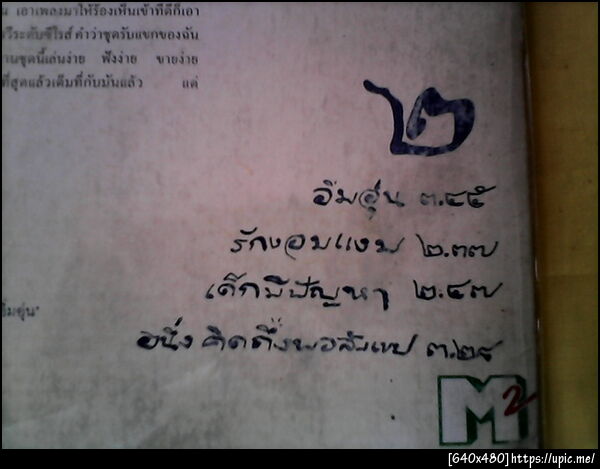 น เอาเพลงมาให้ร้องเห็นเข้าที่ดีก็เอา
ทวีระดับซีไรส์ คำว่าชุดรับแขกของฉัน
านชุดนี้เล่นง่าย ฟังง่าย ขายง่าย
ที่สุดแล้วเต็มที่กับมันแล้ว แต่
๒
อิ่มอุ่น ๓.๔๕
รักงอมแงม ๒.๓๗
เด็กมีปัญหา ๒.๔๗
อนึ่ง คิดถึงพอสังเขป ๓.๒๘
อิ่มอุ่น"
M2
[640x480]https://upic.me/